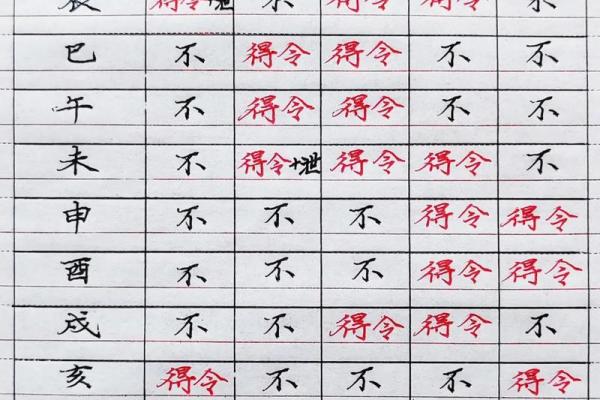 辰 得令+泄 不 得令 得令 不
巳 不 得令 得令 不 不
午 不 得令 得令 不 不
未 不 得令+泄 得令 得令 不
申 不 不 不 得令 得令
酉 不 不 不 得令 得令
戍 不 不 得令 得令 不
亥 得令 不 不 不 得令